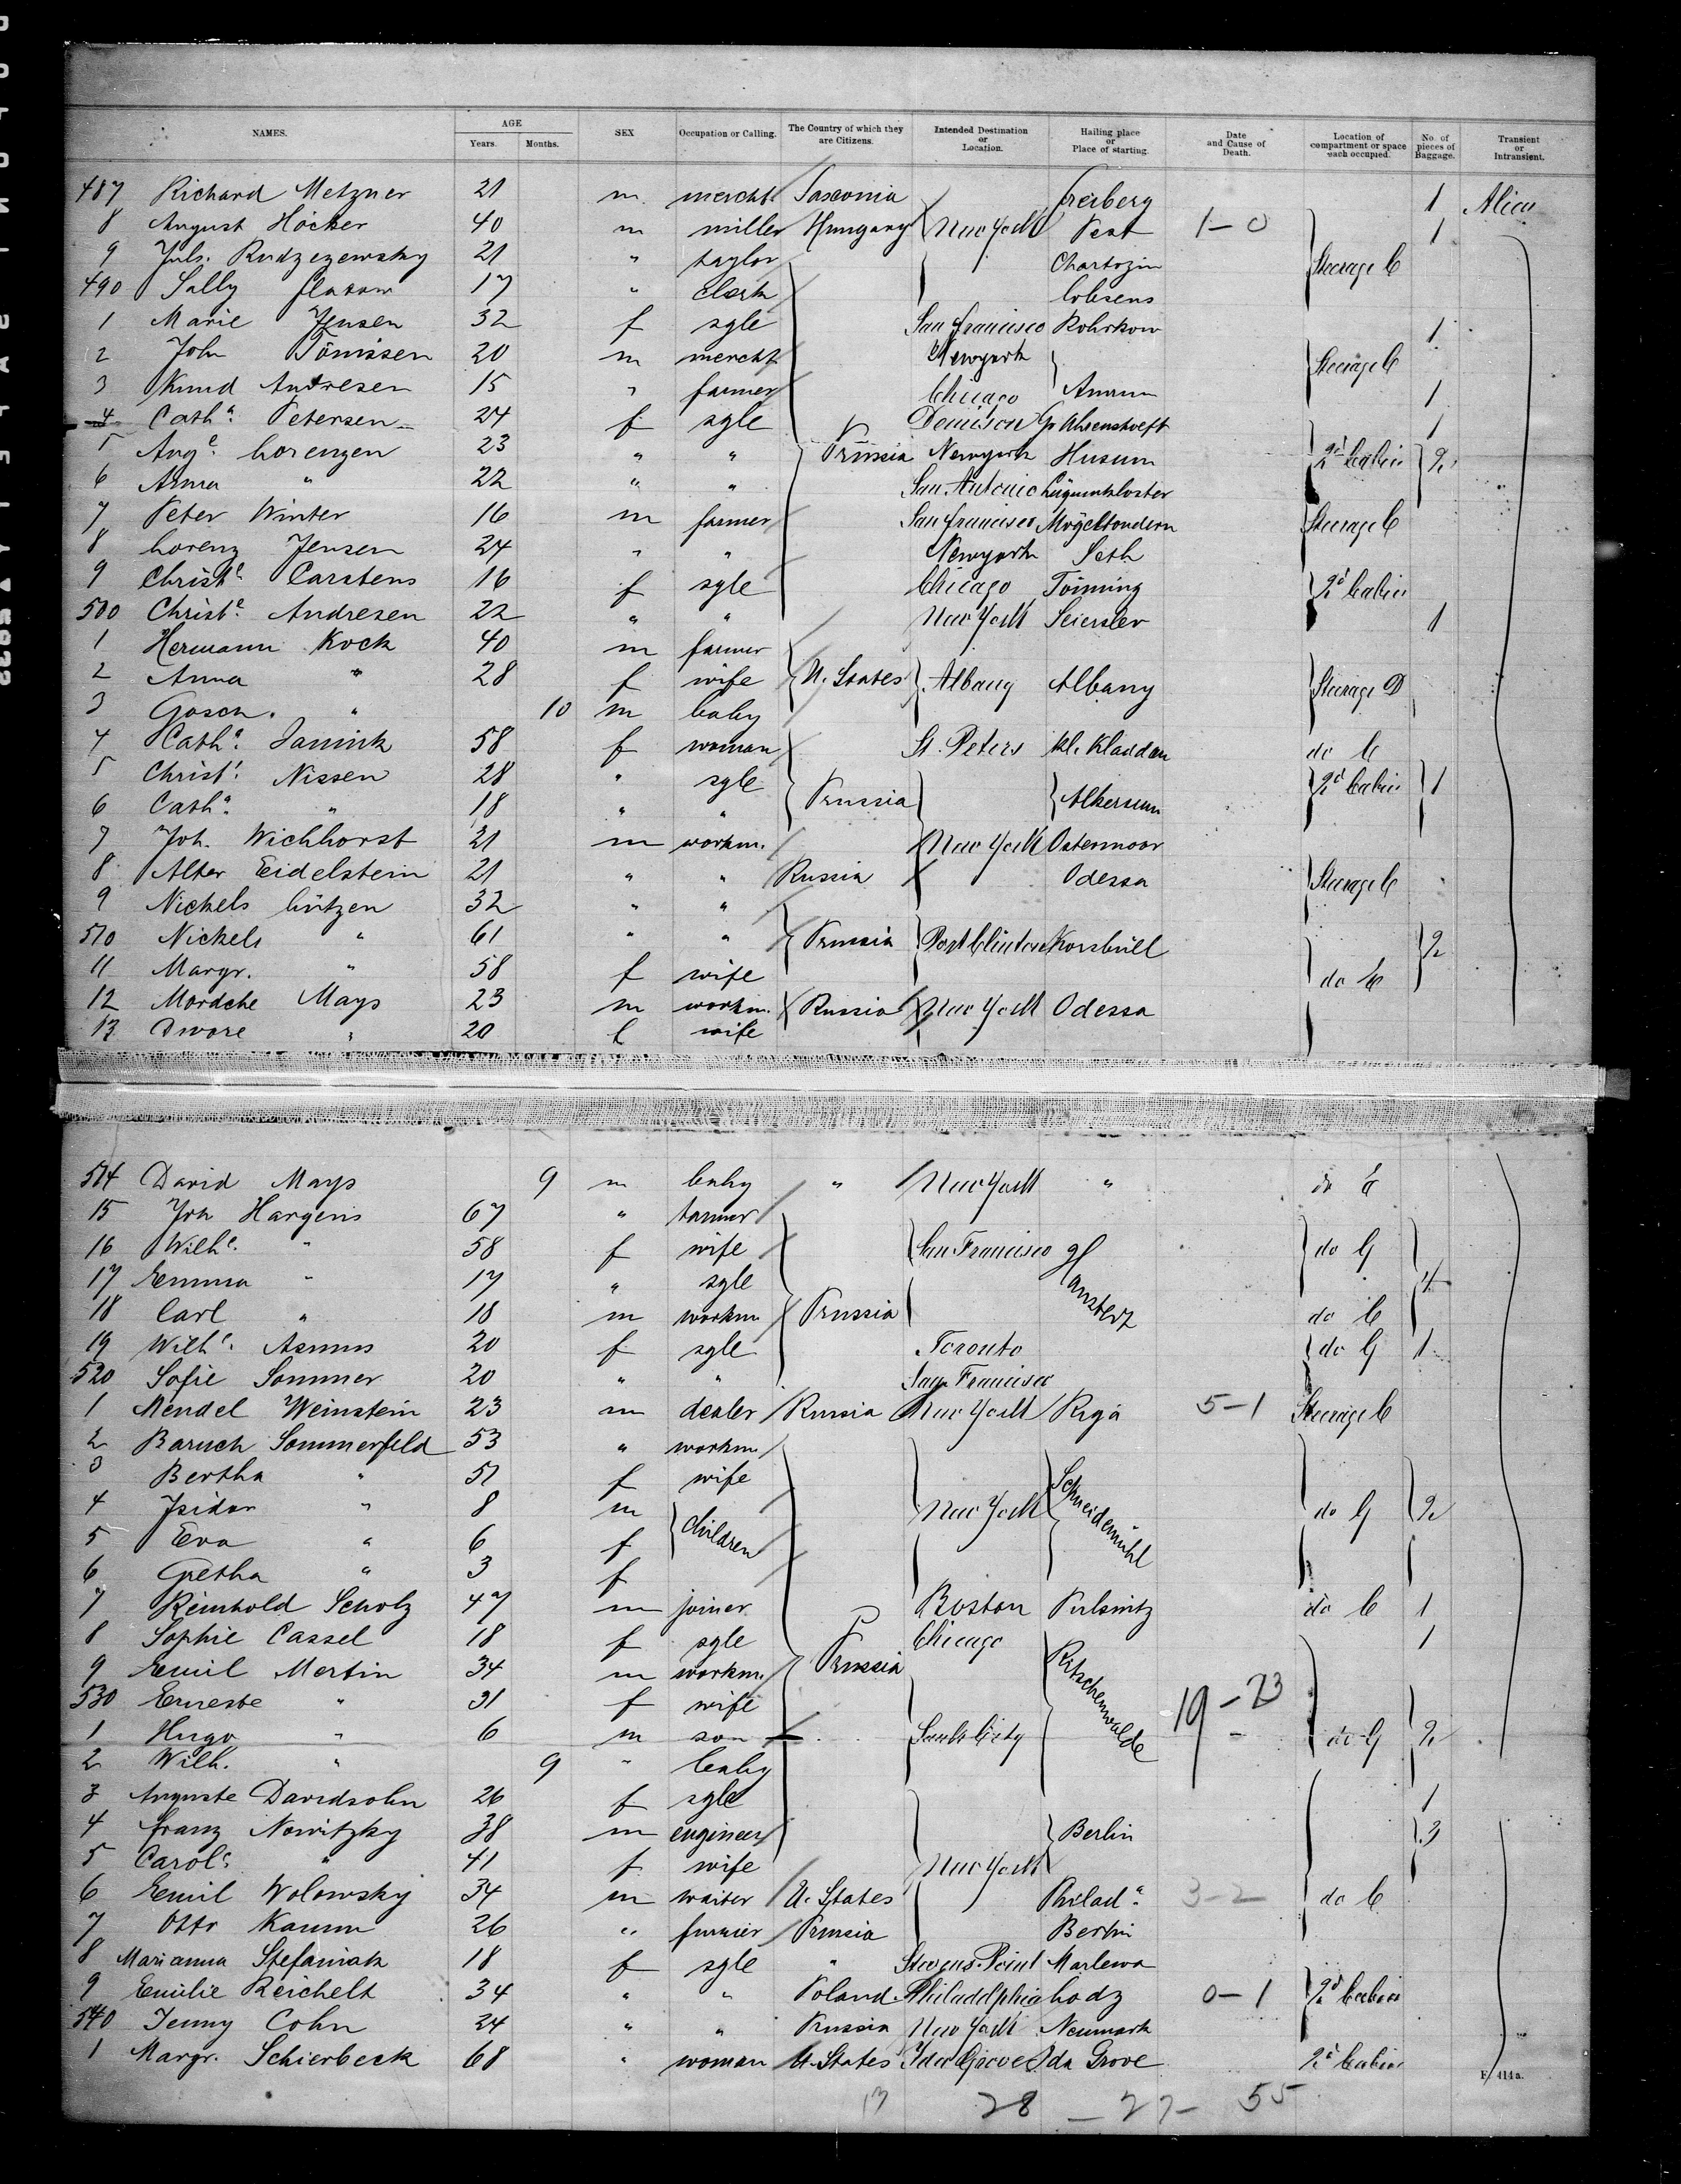 NAMES. AGE Years. Months. SEX Occupation or Calling. The Country of which they are Citizens. Intended Destination or Location. Hailing place or Place of starting. Date and Cause of Death. Location of compartment or space each occupied. No. of pieces of Baggage. Transient or Intransient.
487 Richard Metzner 21 m mercht Freiberg 1
8 August Höcker 40 m miller Hungary New York Pest 1-0 1
9 Juls. 21 " taylor Steerage C
490 Sally 17 " clerk
1 Marie Jensen 32 f sgle San Francisco 1
2 Joh Tönissen 20 m mercht Newyork Steerage C
3 Knud Andresen 15 " farmer Chicago Amrum 1
4 Cath.a Petersen 24 f sgle Denison 1
5 Aug.e Lorenzen 23 " " Prussia Newyork Husum 2d Cabin 2
6 Anna " 22 " " San Antonio Lügumkloster
7 Peter Winter 16 m farmer San Francisco Mögeltondern Steerage C
8 Lorenz Jensen 24 " " Newyork Seth
9 Christ.e Carstens 16 f sgle Chicago Tönning 2d Cabin
500 Christ.e Andresen 22 " " New York Seierslev 1
1 Hermann Kock 40 m farmer
2 Anna " 28 f wife U. States Albany Albany Steerage D
3 " 10 m baby
4 Cath.a 58 f woman St. Peters do C
5 Christ.e Nissen 28 " sgle 2d Cabin 1
6 Cath.a " 18 " " Prussia Alkersum
7 Joh. Wichhorst 21 m workm. New York Ostermoor
8 Alter Eidelstein 21 " " Russia Odessa Steerage C
9 Nickels Lützen 32 " "
510 Nickels " 61 " " Prussia Port Clinton 2
11 Margr. " 58 f wife do C
12 Mordche Mays 23 m workm. Russia New York Odessa
13 Dwore " 20 f wife
514 David Mays 9 m baby " New York " do
15 Joh Hargens 67 " farmer
16 Wilh.e " 58 f wife San Francisco do G
17 Emma " 17 " sgle 4
18 Carl " 18 m workm Prussia do C
19 Wilh.e Asmus 20 f sgle Toronto do G 1
520 Sofie Sommer 20 " " San Francisco
1 Mendel Weinstein 23 m dealer Russia New York Riga 5-1 Steerage C
2 Baruch Sommerfeld 53 " workm
3 Bertha " 51 f wife
4 Isidor " 8 m children New York Schneidemühl do G 2
5 Eva " 6 f
6 Gretha " 3 f
7 Reinhold Scholz 47 m joiner Boston Pulsnitz do C 1
8 Sophie Cassel 18 f sgle Chicago 1
9 Emil Mertin 34 m workm. Prussia Ritschenwalde
530 Erneste " 31 f wife 19-23
1 Hugo " 6 m son do G 2
2 Wilh. " 9 " baby
3 Auguste Davidsohn 26 f sgle 1
4 Franz Nowitzky 38 m engineer Berlin 3
5 Carol.e " 41 f wife New York
6 Emil Wolowsky 34 m waiter U. States Philad.a 3-2 do C
7 Otto Kamm 26 " furrier Prussia Berlin
8 Marianna Stefaniak 18 f sgle " Stevens Point Marlewo
9 Emilie Reichelt 34 " " Poland Philadelphia Lodz 0-1 2d Cabin
540 Jenny Cohn 24 " " Prussia New York Neumark
1 Margr. Schierbeck 68 " woman U. States Ida Grove Ida Grove 2d Cabin
28 - 27 - 55